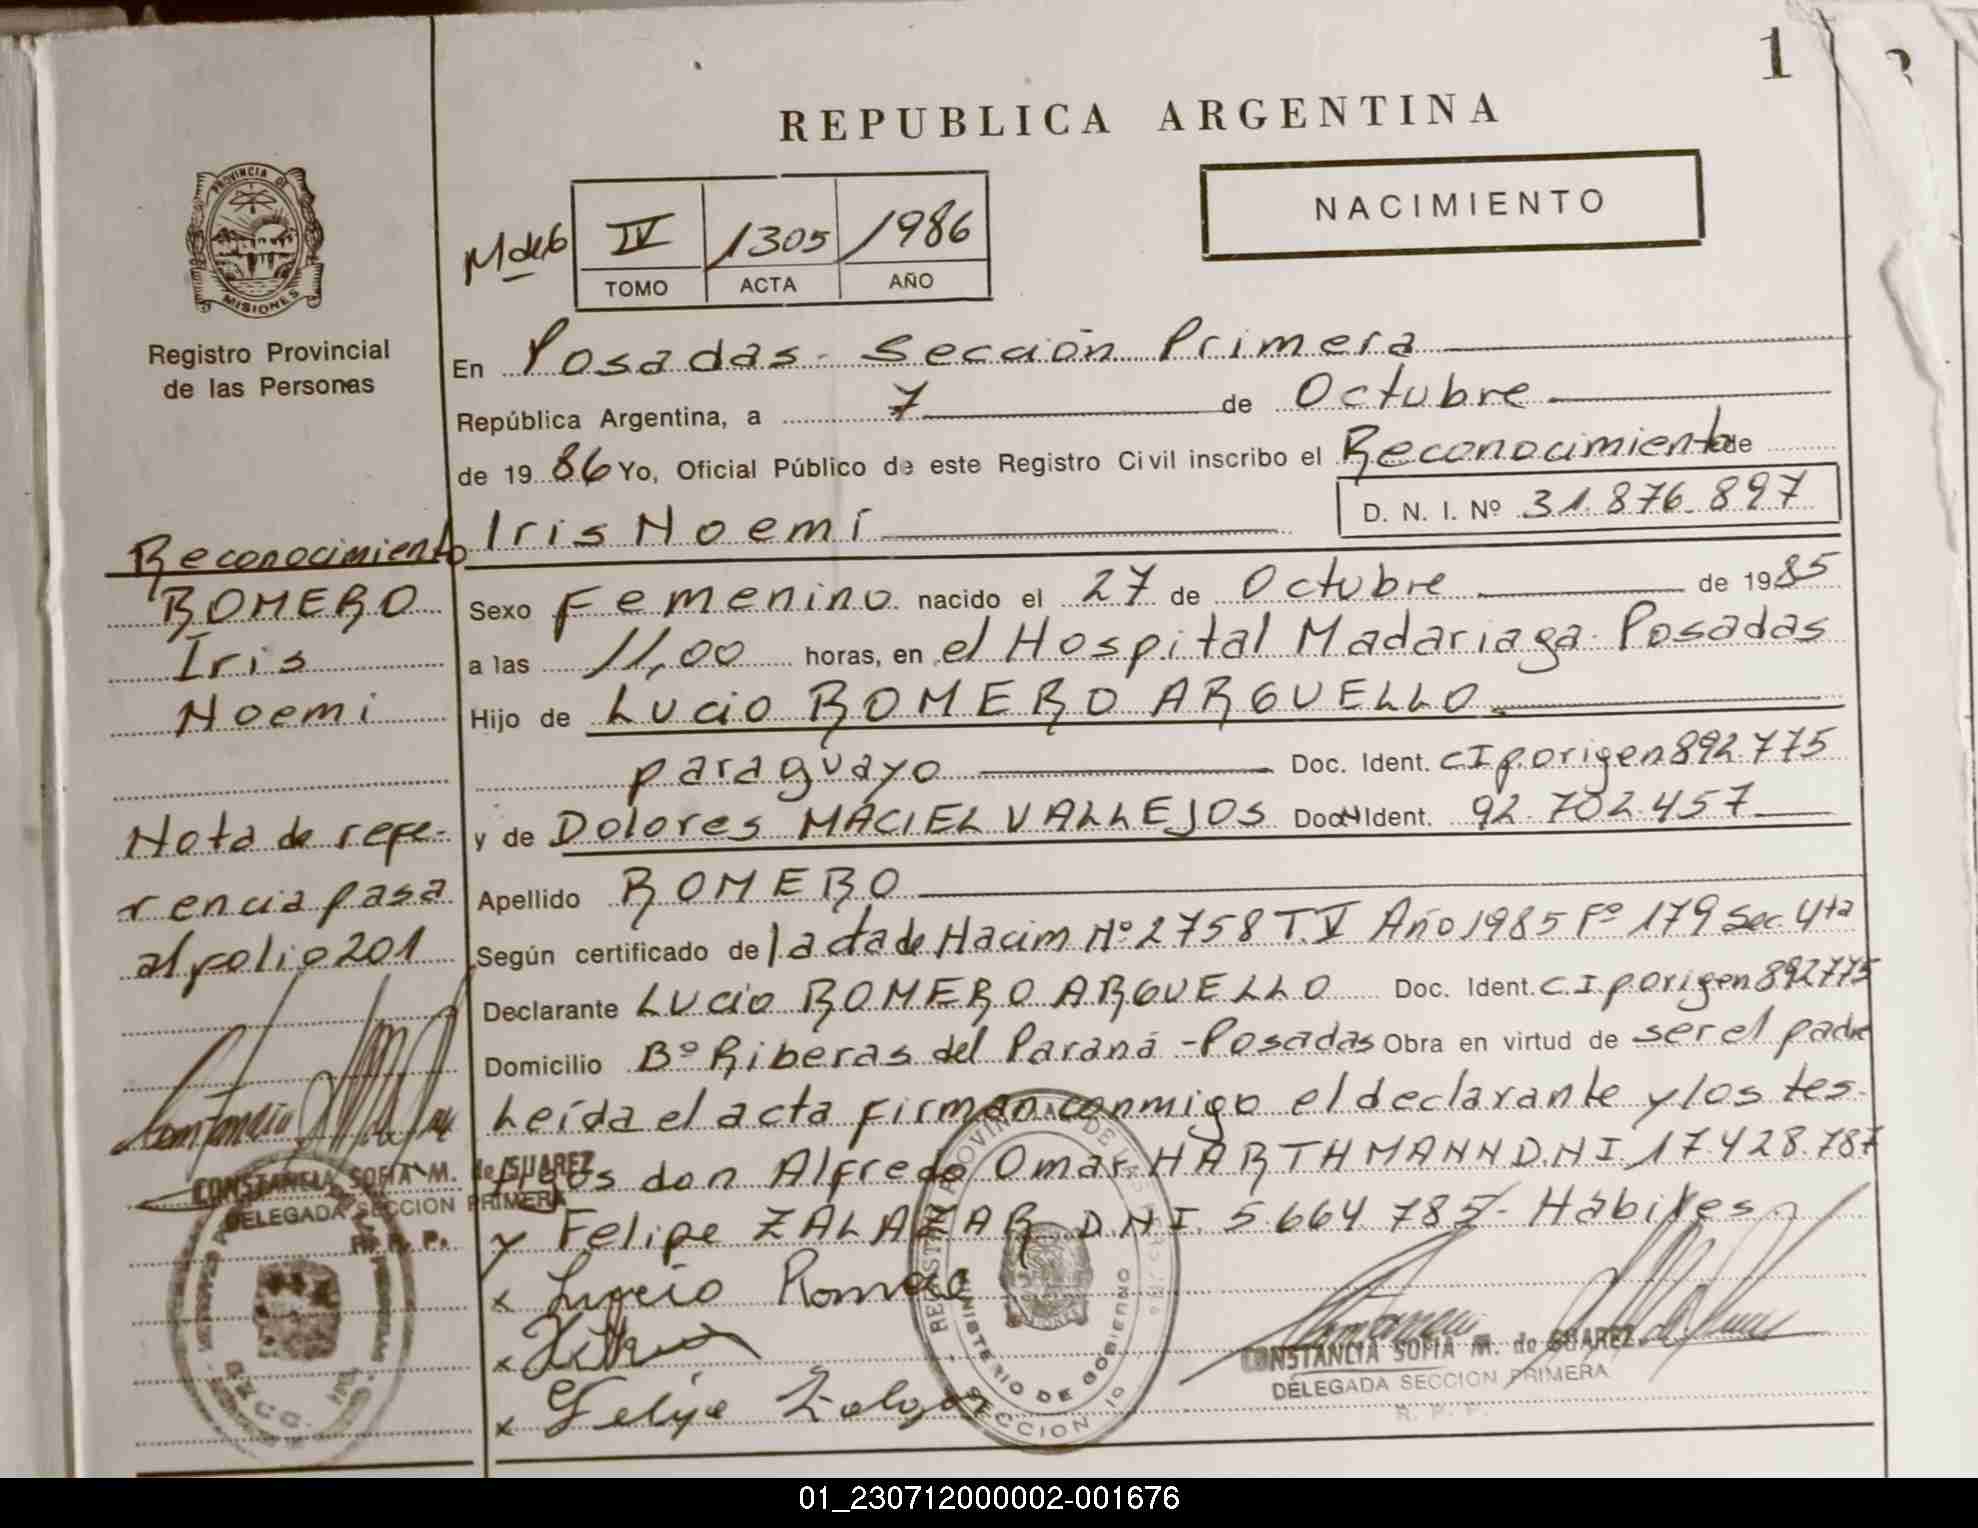 1
REPUBLICA ARGENTINA
NACIMIENTO
PROVINCIA DE
MISIONES
Registro Provincial
de las Personas
IV 1305 1986
TOMO ACTA AÑO
En Posadas - Sección Primera
República Argentina, a 7 de Octubre
de 1986 Yo, Oficial Público de este Registro Civil inscribo el Reconocimiento de
D. N. I. Nº 31.876.897
Iris Noemí
Sexo Femenino nacido el 27 de Octubre de 1985
a las 11,00 horas, en el Hospital Madariaga - Posadas
Hijo de Lucio ROMERO ARGUELLO
paraguayo Doc. Ident. CI p.origen 892.775
y de Dolores MACIEL VALLEJOS Doc. Ident. 92.702.457
Apellido ROMERO
Según certificado de l acta de Nacim Nº 2758 T.V Año 1985 Fº 179 Sec. 4ta
Declarante Lucio ROMERO ARGUELLO Doc. Ident. C.I p.origen 892775
Domicilio Bº Riberas del Paraná - Posadas Obra en virtud de ser el padre
Leída el acta firman conmigo el declarante y los tes-
tigos don Alfredo Omar HARTHMANN D.N.I 17.428.787
y Felipe ZALAZAR D.N.I. 5.664.785 - Hábiles
x Lucio Romero
x
x Felipe Zalazar
CONSTANCIA SOFIA M. de SUAREZ
DELEGADA SECCION PRIMERA
R. P. P.
MINISTERIO DE GOBIERNO
Reconocimiento
ROMERO
Iris
Noemi
Nota de refe-
rencia pasa
al folio 201
CONSTANCIA SOFIA M. de SUAREZ
DELEGADA SECCION PRIMERA
R. P. P.
01_230712000002-001676